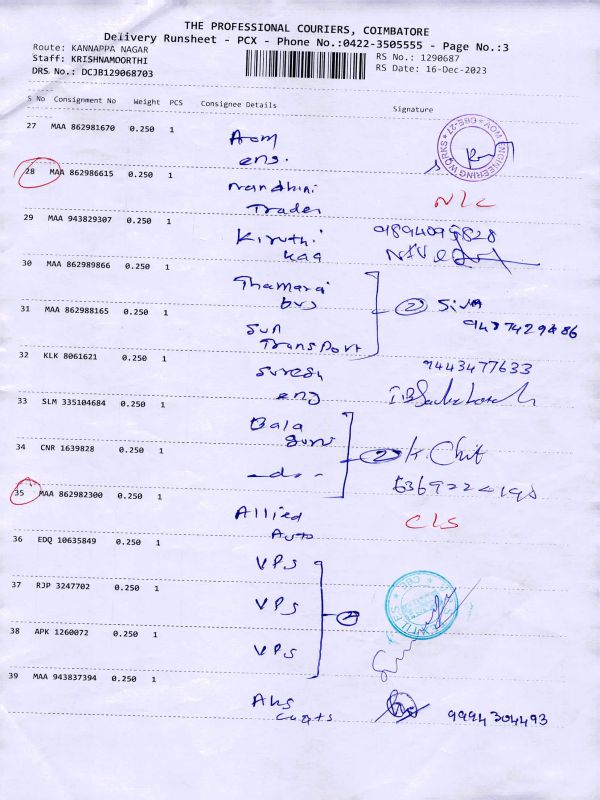 THE PROFESSIONAL COURIERS, COIMBATORE
Delivery Runsheet - PCX - Phone No.:0422-3505555 - Page No.:3
Route: KANNAPPA NAGAR
RS No.: 1290687
Staff: KRISHNAMOORTHI
RS Date: 16-Dec-2023
DRS No.: DCJB129068703
S No Consignment No Weight PCS Consignee Details Signature
27 MAA 862981670 0.250 1 Aom
eng.
AOM ENGINEERING WORKS * CBE-21 *
28 MAA 862986615 0.250 1 Nandhini
Trader
N/C
29 MAA 943829307 0.250 1 Kiruthi
kaa
30 MAA 862989866 0.250 1 Thamarai
bvs
2 Siva
31 MAA 862988165 0.250 1 Sun
Transport
32 KLK 8061621 0.250 1 Suresh
eng
9443477633
33 SLM 335104684 0.250 1 Bala
34 CNR 1639828 0.250 1 -do-
2 K. Chit
35 MAA 862982300 0.250 1 Allied
Auto
CLS
36 EDQ 10635849 0.250 1 VPS
37 RJP 3247702 0.250 1 VPS
38 APK 1260072 0.250 1 VPS
39 MAA 943837394 0.250 1 Aks
9994304493